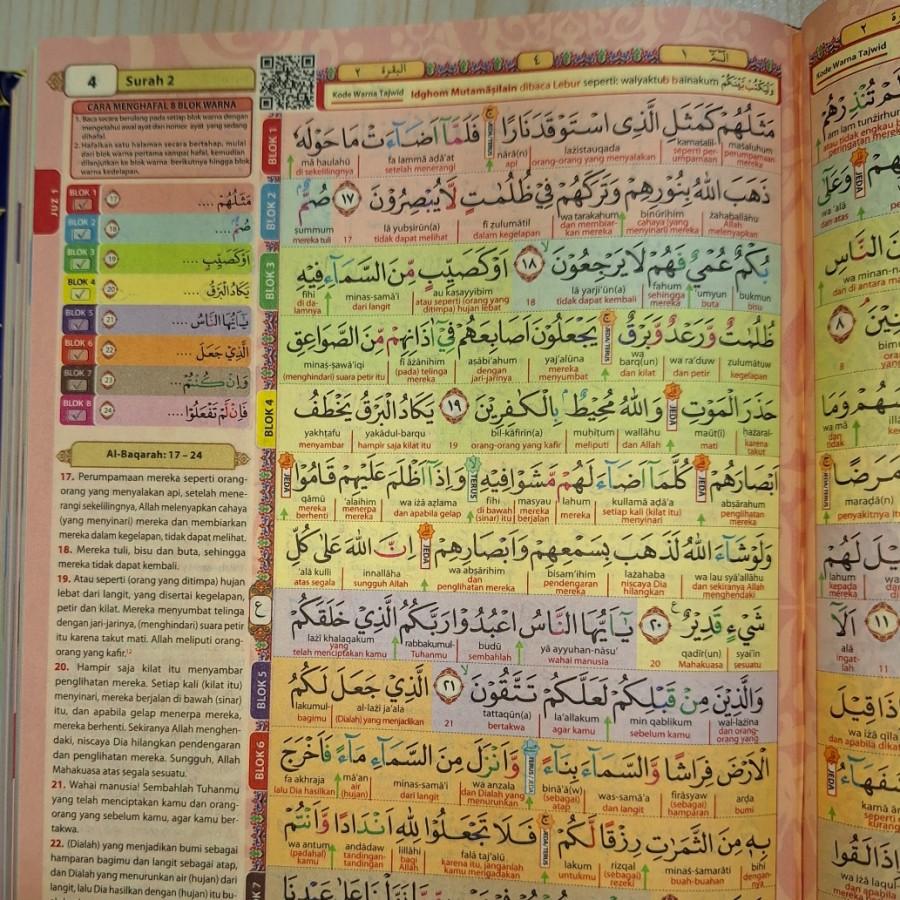 4 Surah 2
CARA MENGHAFAL 8 BLOK WARNA
1. Baca secara berulang pada setiap blok warna dengan
mengetahui awal ayat dan nomor ayat yang sedang
dihafal.
2. Hafalkan satu halaman secara bertahap, mulai
dari blok warna pertama sampai hafal, kemudian
dilanjutkan ke blok warna berikutnya hingga blok
warna kedelapan.
JUZ 1
BLOK 1 17 مَثَلُهُمْ ....
BLOK 2 18 صُمٌّ ....
BLOK 3 19 اَوْ كَصَيِّبٍ ....
BLOK 4 20 يَكَادُ الْبَرْقُ ....
BLOK 5 21 يٰٓاَيُّهَا النَّاسُ ....
BLOK 6 22 الَّذِيْ جَعَلَ ....
BLOK 7 23 وَاِنْ كُنْتُمْ ....
BLOK 8 24 فَاِنْ لَّمْ تَفْعَلُوْا ....
Al-Baqarah: 17 – 24
17. Perumpamaan mereka seperti orang-
orang yang menyalakan api, setelah mene-
rangi sekelilingnya, Allah melenyapkan cahaya
(yang menyinari) mereka dan membiarkan
mereka dalam kegelapan, tidak dapat melihat.
18. Mereka tuli, bisu dan buta, sehingga
mereka tidak dapat kembali.
19. Atau seperti (orang yang ditimpa) hujan
lebat dari langit, yang disertai kegelapan,
petir dan kilat. Mereka menyumbat telinga
dengan jari-jarinya, (menghindari) suara petir
itu karena takut mati. Allah meliputi orang-
orang yang kafir.¹²
20. Hampir saja kilat itu menyambar
penglihatan mereka. Setiap kali (kilat itu)
menyinari, mereka berjalan di bawah (sinar)
itu, dan apabila gelap menerpa mereka,
mereka berhenti. Sekiranya Allah menghen-
daki, niscaya Dia hilangkan pendengaran
dan penglihatan mereka. Sungguh, Allah
Mahakuasa atas segala sesuatu.
21. Wahai manusia! Sembahlah Tuhanmu
yang telah menciptakan kamu dan orang-
orang yang sebelum kamu, agar kamu ber-
takwa.
22. (Dialah) yang menjadikan bumi sebagai
hamparan bagimu dan langit sebagai atap,
dan Dialah yang menurunkan air (hujan) dari
langit, lalu Dia hasilkan dengan (hujan) itu bu-
البقرة ٢ ٤ الٓمّٓ ١
Kode Warna Tajwid Idghom Mutamāṡilain dibaca Lebur seperti: walyaktub bainakum وَلْيَكْتُبْ بَّيْنَكُمْ
BLOK 1
مَثَلُهُمْ كَمَثَلِ الَّذِى اسْتَوْقَدَ نَارًا ۚ فَلَمَّآ اَضَاۤءَتْ مَا حَوْلَهٗ
maṡaluhum kamaṡalil- lażistauqada nārā(n) fa lammā aḍā'at mā ḥaulahū
perumpamaan mereka seperti per- umpamaan orang-orang yang menyalakan api setelah menerangi di sekelilingnya
BLOK 2
ذَهَبَ اللّٰهُ بِنُوْرِهِمْ وَتَرَكَهُمْ فِيْ ظُلُمٰتٍ لَّا يُبْصِرُوْنَ ١٧ صُمٌّۢ
żahaballāhu binūrihim wa tarakahum fī ẓulumātil lā yubṣirūn(a) summum
Allah melenyapkan cahaya (yang menyinari) mereka dan membiar- kan mereka dalam kegelapan tidak dapat melihat 17 mereka tuli
BLOK 3
بُكْمٌ عُمْيٌ فَهُمْ لَا يَرْجِعُوْنَ ۙ ١٨ اَوْ كَصَيِّبٍ مِّنَ السَّمَاۤءِ فِيْهِ
bukmun 'umyun fahum lā yarji'ūn(a) au kaṣayyibim minas-samā'i fīhi
bisu buta sehingga mereka tidak dapat kembali 18 atau seperti (orang yang ditimpa) hujan lebat dari langit di da- lamnya
ظُلُمٰتٌ وَّرَعْدٌ وَّبَرْقٌ ۚ يَجْعَلُوْنَ اَصَابِعَهُمْ فِيْٓ اٰذَانِهِمْ مِّنَ الصَّوَاعِقِ
ẓulumātuw wa ra'duw wa barq(un) yaj'alūna aṣābi'ahum fī āżānihim minaṣ-ṣawā'iqi
kegelapan dan petir dan kilat mereka menyumbat dengan jari-jarinya (pada) telinga mereka (menghindari) suara petir itu
BLOK 4
حَذَرَ الْمَوْتِ ۗ وَاللّٰهُ مُحِيْطٌۢ بِالْكٰفِرِيْنَ ١٩ يَكَادُ الْبَرْقُ يَخْطَفُ
ḥażaral- maūt(i) wallāhu muḥīṭum bil-kāfirīn(a) yakādul-barqu yakhṭafu
karena takut mati dan Allah meliputi orang-orang yang kafir 19 hampir saja kilat itu menyambar
اَبْصَارَهُمْ ۗ كُلَّمَآ اَضَاۤءَ لَهُمْ مَّشَوْا فِيْهِ ۙ وَاِذَآ اَظْلَمَ عَلَيْهِمْ قَامُوْا ۗ
abṣārahum kullamā aḍā'a lahum masyau fīhi wa iżā aẓlama 'alaihim qāmū
penglihatan mereka setiap kali (kilat itu) menyinari mereka mereka berjalan di bawah (sinar) itu dan apabila gelap menerpa mereka mereka berhenti
وَلَوْ شَاۤءَ اللّٰهُ لَذَهَبَ بِسَمْعِهِمْ وَاَبْصَارِهِمْ ۗ اِنَّ اللّٰهَ عَلٰى كُلِّ
wa lau syā'allāhu lażahaba bisam'ihim wa abṣārihim innallāha 'alā kulli
dan sekiranya Allah menghendaki niscaya Dia hilangkan pendengaran mereka dan penglihatan mereka sungguh Allah atas segala
شَيْءٍ قَدِيْرٌ ࣖ ٢٠ يٰٓاَيُّهَا النَّاسُ اعْبُدُوْا رَبَّكُمُ الَّذِيْ خَلَقَكُمْ
syai'in qadīr(un) yā ayyuhan-nāsu' budū rabbakumul- lażī khalaqakum
sesuatu Mahakuasa 20 wahai manusia sembahlah Tuhanmu yang telah menciptakan kamu
BLOK 5
وَالَّذِيْنَ مِنْ قَبْلِكُمْ لَعَلَّكُمْ تَتَّقُوْنَ ۙ ٢١ الَّذِيْ جَعَلَ لَكُمُ
wal-lażīna min qablikum la'allakum tattaqūn(a) al-lażī ja'ala lakumul-
dan orang- orang yang sebelum kamu agar kamu bertakwa 21 (Dialah) yang menjadikan bagimu
BLOK 6
الْاَرْضَ فِرَاشًا وَّالسَّمَاۤءَ بِنَاۤءً ۖ وَّاَنْزَلَ مِنَ السَّمَاۤءِ مَاۤءً فَاَخْرَجَ
arḍa firāsyaw was-samā'a binā'ā(w) wa anzala minas-samā'i mā'an fa akhraja
bumi (sebagai) hamparan dan langit (sebagai) atap dan Dialah yang menurunkan dari langit air (hujan) lalu Dia hasilkan
بِهٖ مِنَ الثَّمَرٰتِ رِزْقًا لَّكُمْ ۚ فَلَا تَجْعَلُوْا لِلّٰهِ اَنْدَادًا وَّاَنْتُمْ
bihī minaṡ-ṡamarāti rizqal lakum falā taj'alū lillāhi andādaw wa antum
dengan- nya buah-buahan (sebagai) rezeki untukmu karena itu, janganlah kamu mengadakan bagi Allah tandingan- tandingan (padahal) kamu
Kode Warna Tajwid